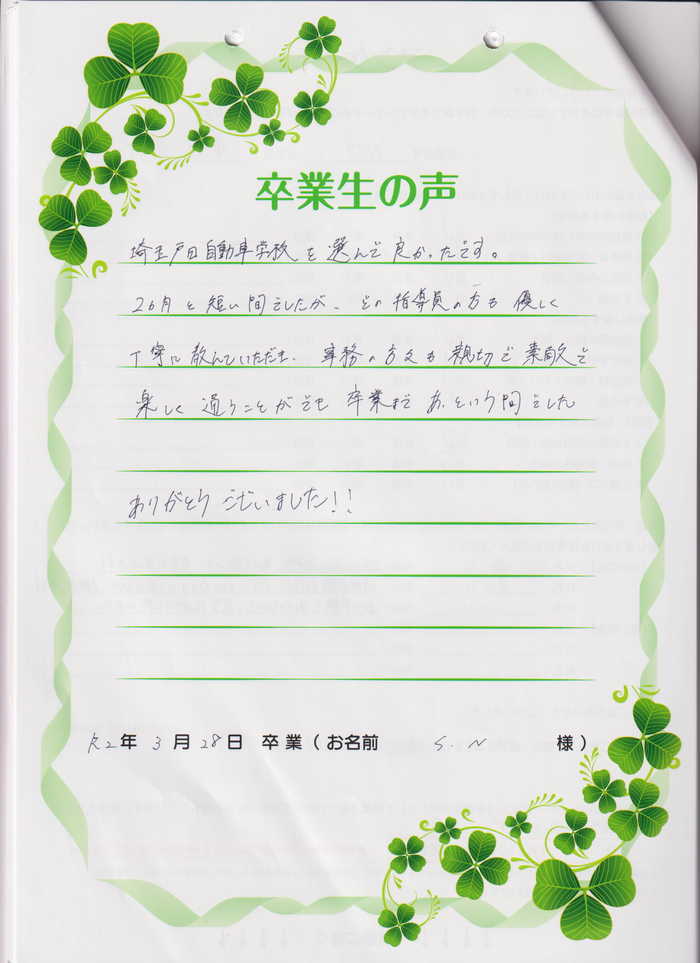 卒業生の声
埼玉戸田自動車学校を選んで良かったです。
2ヵ月と短い間でしたが、どの指導員の方も優しく
丁寧に教えていただき、事務の方々も親切で素敵で
楽しく通うことができ卒業まであっという間でした
ありがとうございました!!
R2年3月28日 卒業(お名前 S.N 様)